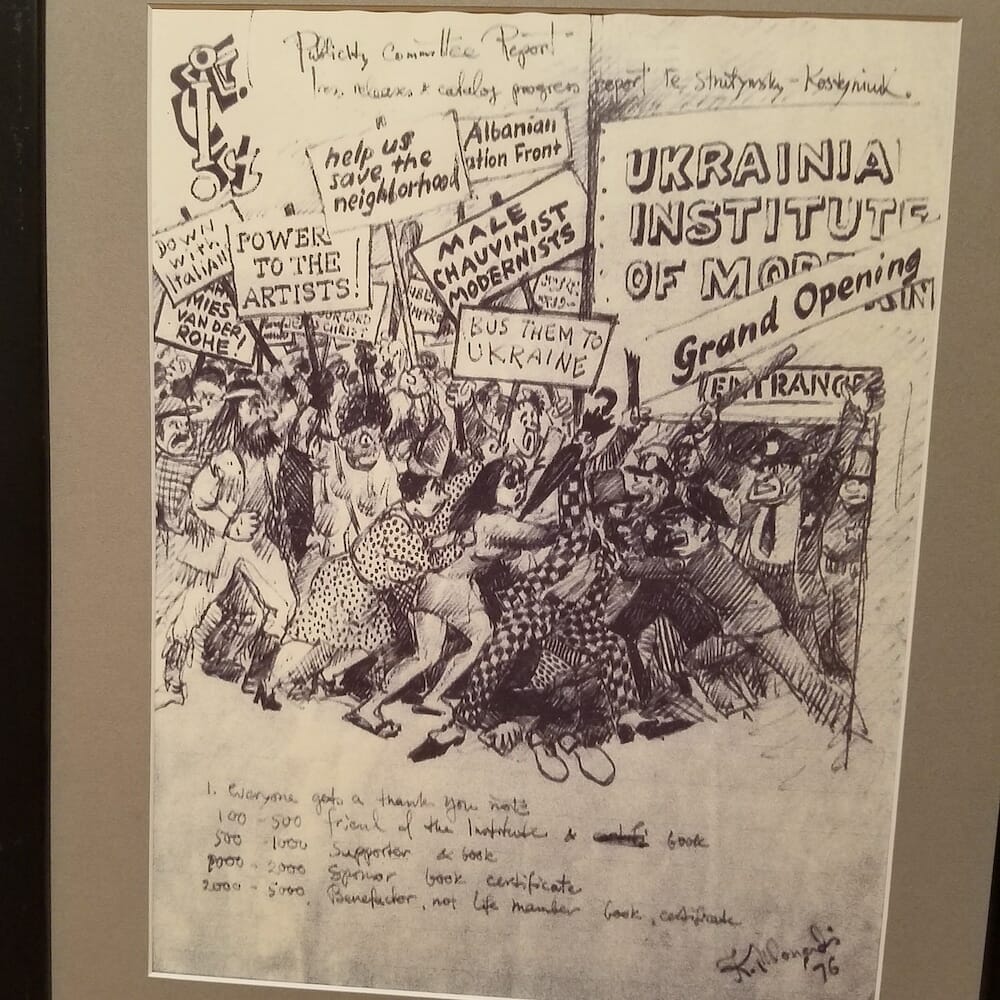 Publicity Committee Report
releases & catalog progress report re Strutynsky - Kostyniuk.
help us
save the
neighborhood
Albanian
ation Front
UKRAINIA
INSTITUTE
OF MODE
RN
Grand Opening
ENTRANCE
MALE
CHAUVINIST
MODERNISTS
DOWN
WITH
Italian
POWER
TO THE
ARTISTS!
MIES
VAN DER
ROHE!
CHRIST
BUS THEM TO
UKRAINE
1. everyone gets a thank you note
100 - 500 friend of the Institute & book
500 - 1000 Supporter & book
1000 - 2000 Sponsor book certificate
2000 - 5000, Benefactor, not life member book, certificate
76